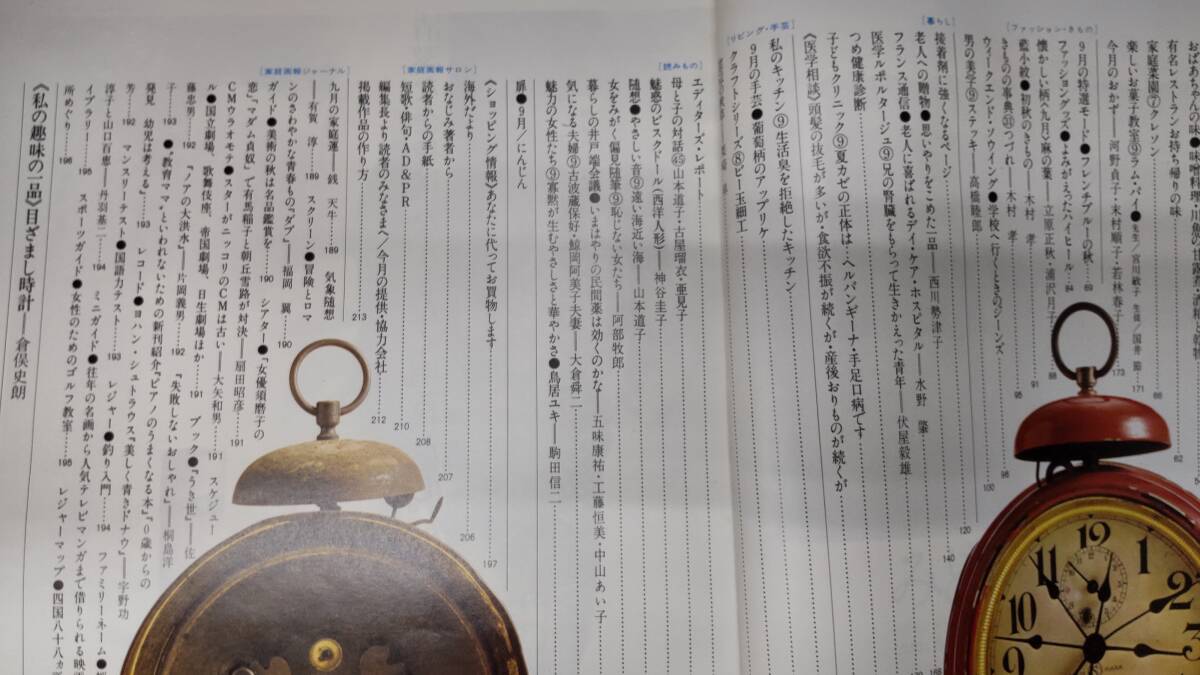 ［ファッション・きもの］
［暮らし］
［リビング・手芸］
［読みもの］
［家庭画報サロン］
［家庭画報ジャーナル］
有名レストランお持ち帰りの味
家庭菜園⑦クレソン
楽しいお菓子教室⑨ラム・パイ●先生/宮川敏子 生徒/国井 節 171
今月のおかず―河野貞子・木村順子・若林春子 173
9月の特選モード●フレンチブルーの秋 69
ファッショングッズ●よみがえったハイヒール 84
懐かしい柄⑨九月麻の葉―立原正秋・浦沢月子 88
藍小紋●初秋のきもの―木村 孝 91
きものの事典㉛つづれ―木村 孝 95
ウィークエンド・ソウイング●学校へ行くときのジーンズ 96
男の美学⑨ステッキ―高橋睦郎 100
接着剤に強くなるページ 120
老人への贈物●思いやりをこめた一品―西川勢津子 140
フランス通信●老人に喜ばれるデイ・ケア・ホスピタル―水野 肇
医学ルポルタージュ⑨兄の腎臓をもらって生きかえった青年―伏屋毅雄
つめ健康診断
子どもクリニック⑨夏カゼの正体は、ヘルパンギーナ・手足口病です
《医学相談》頭髪の抜毛が多いが・食欲不振が続くが・産後おりものが続くが
私のキッチン⑨生活臭を拒絶したキッチン
9月の手芸●葡萄柄のアップリケ
クラフトシリーズ⑧ビー玉細工
エディターズ・レポート
母と子の対話㊺山本道子・古屋瑠衣・亜見子
魅惑のビスクドール（西洋人形）―神谷圭子
随想●やさしい音⑨遠い海近い海―山本道子
女をみがく偏見随筆⑨恥じない女たち―阿部牧郎
暮らしの井戸端会議●いまはやりの民間薬は効くのかな―五味康祐・工藤恒美・中山あい子
気になる夫婦⑨古波蔵保好・鯨岡阿美子夫妻―大倉舜二
魅力の女性たち⑨寡黙が生むやさしさと華やかさ●鳥居ユキ―駒田信二
扉●9月/にんじん
《ショッピング情報》あなたに代ってお買物します 197
海外だより 206
おなじみ著者から 207
読者からの手紙 208
短歌・俳句・AD&PR 210
編集長より読者のみなさまへ/今月の提供・協力会社 212
掲載作品の作り方 213
九月の家庭運―銭 天牛……189 気象随想
―有賀 淳……189 スクリーン●冒険とロマ
ンのさわやかな青春もの『ダブ』―福岡 翼……190
ガイド●美術の秋は名品鑑賞を……190 シアター●『女優須磨子の
恋』『マダム貞奴』で有馬稲子と朝丘雪路が対決―扇田昭彦……191
CMウラオモテ●スターがニッコリのCMは古い―大矢和男……191 スケジュー
ル●国立劇場、歌舞伎座、帝国劇場、日生劇場ほか……191 ブック●『うき世』―佐
藤忠男……192 『ノアの大洪水』―片岡義男……192 『失敗しないおしゃれ』―桐島洋
子……193 ●“教育ママ”といわれないための新刊紹介『ピアノのうまくなる本』『0歳からの
発見 幼児は考える』……193 レコード●ヨハン・シュトラウス『美しく青きドナウ』―宇野功
芳……192 マンスリーテスト●国語力テスト……193 レジャー●釣り入門……194 ファミリーネーム●
淳子と山口百恵―丹羽基二……194 ミニガイド●往年の名画から人気テレビマンガまで借りられる映画
イブラリー……195 スポーツガイド●女性のためのゴルフ教室……195 レジャーマップ●四国八十八ヵ
所めぐり……196
《私の趣味の一品》目ざまし時計―倉俣史朗
12
1
2
3
11
10
9